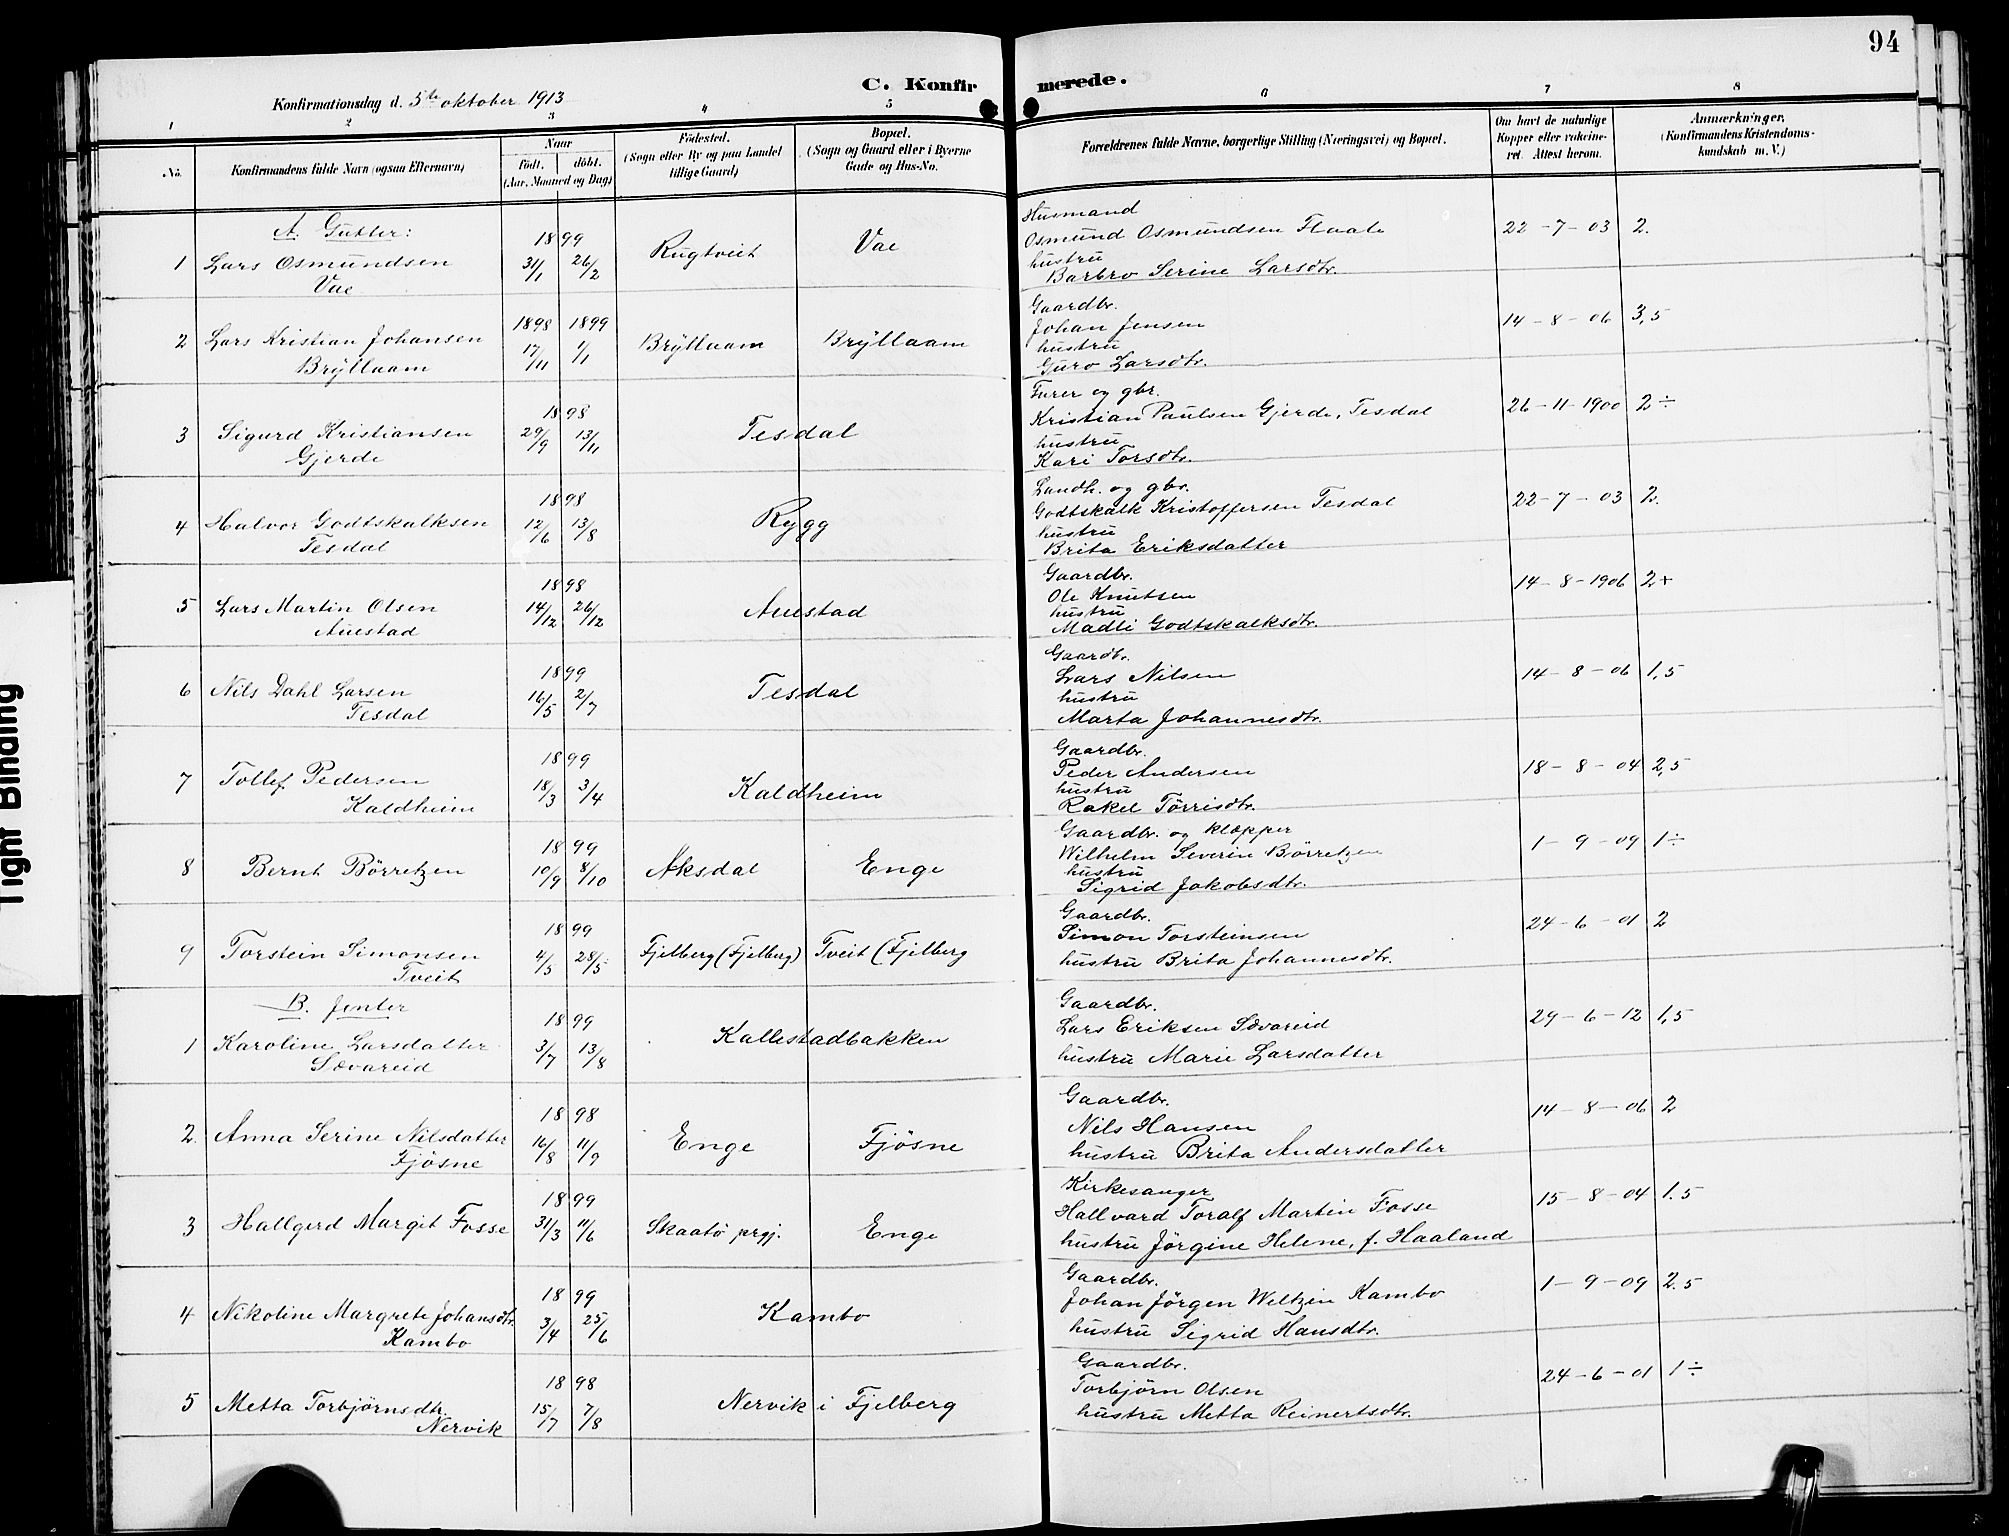 94
C. Konfirmerede.
Konfirmationsdag d. 5te oktober 1913
1 2 3 4 5 6 7 8
No. Konfirmandens fulde Navn (ogsaa Efternavn) Naar født. døbt. (Aar, Maaned og Dag) Fødested. (Sogn eller By og paa Landet tillige Gaard) Bopæl. (Sogn og Gaard eller i Byerne Gade og Hus-No. Forældrenes fulde Navne, borgerlige Stilling (Næringsvei) og Bopæl. Om havt de naturlige Kopper eller vakcineret. Attest herom. Anmærkninger. (Konfirmandens Kristendomskundskab m. V.)
A. Gutter:
1 Lars Osmundsen Vae 1899 31/1 26/2 Rugtveit Vae
Husmand
Osmund Osmundsen Flaate
hustru
Barbro Serine Larsdtr. 22-7-03 2.
2 Lars Kristian Johansen Brÿllaam 1898 17/11 1899 1/1 Brÿllaam Brÿllaam
Gaardbr.
Johan Jensen
hustru
Guro Larsdtr. 14-8-06 3,5
3 Sigurd Kristiansen Gjerde 1898 29/9 13/11 Tesdal
Furer og gbr.
Kristian Paulsen Gjerde, Tesdal
hustru
Kari Torsdtr. 26-11-1900 2÷
4 Halvor Godtskalksen Tesdal 1898 12/6 13/8 Rygg
Landh. og gbr.
Godtskalk Kristoffersen Tesdal
hustru
Brita Eriksdatter 22-7-03 2.
5 Lars Martin Olsen Auestad 1898 14/12 26/12 Auestad
Gaardbr.
Ole Knutsen
hustru
Madli Godtskalksdtr. 14-8-1906 2+
6 Nils Dahl Larsen Tesdal 1899 16/5 2/7 Tesdal
Gaardbr.
Lars Nilsen
hustru
Marta Johannesdtr. 14-8-06 1,5
7 Tollef Pedersen Kaldheim 1899 18/3 3/4 Kaldheim
Gaardbr.
Peder Andersen
hustru
Rakel Tørrisdtr. 18-8-04 2,5
8 Bernt Børretzen 1899 10/9 8/10 Aksdal Enge
Gaardbr. og klopper
Wilhelm Severin Børretzen
hustru
Sigrid Jakobsdtr. 1-9-09 1÷
9 Torstein Simonsen Tveit 1899 4/5 28/5 Fjelberg (Fjelberg) Tveit (Fjelberg
Gaardbr.
Simon Torsteinsen
hustru Brita Johannesdtr. 24-6-01 2
B. Jenter
1 Karoline Larsdatter Sævareid 1899 3/7 13/8 Kallestadbakken
Gaardbr.
Lars Eriksen Sævareid
hustru Marie Larsdatter 29-6-12 1,5
2. Anna Serine Nilsdatter Fjøsne 1898 16/8 11/9 Enge Fjøsne
Gaardbr.
Nils Hansen
hustru Brita Andersdatter 14-8-06 2
3 Hallgerd Margit Fosse 1899 31/3 11/6 Skaatø prgj. Enge
Kirkesanger
Hallvard Toralf Martin Fosse
hustru Jørgine Helene, f. Haaland 15-8-04 1.5
4 Nikoline Margrete Johansdtr. Kambo 1899 3/4 25/6 Kambo
Gaardbr.
Johan Jørgen Weltzin Kambo
hustru Sigrid Hansdtr. 1-9-09 2.5
5 Metta Torbjørnsdtr. Nervik 1898 15/7 7/8 Nervik i Fjelberg
Gaardbr.
Torbjørn Olsen
hustru Metta Reinertsdtr. 24-6-01 1÷
Tight Binding